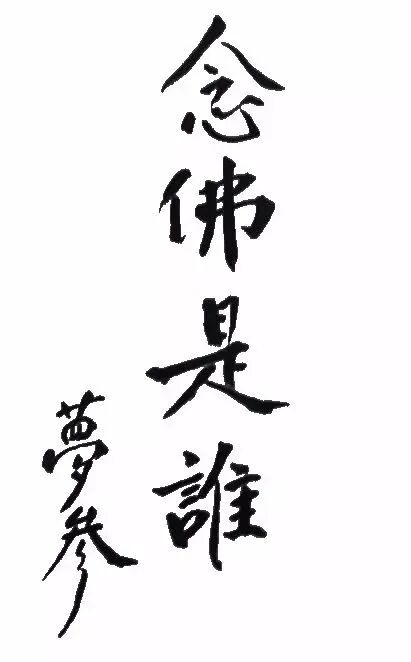 念佛是誰
夢參